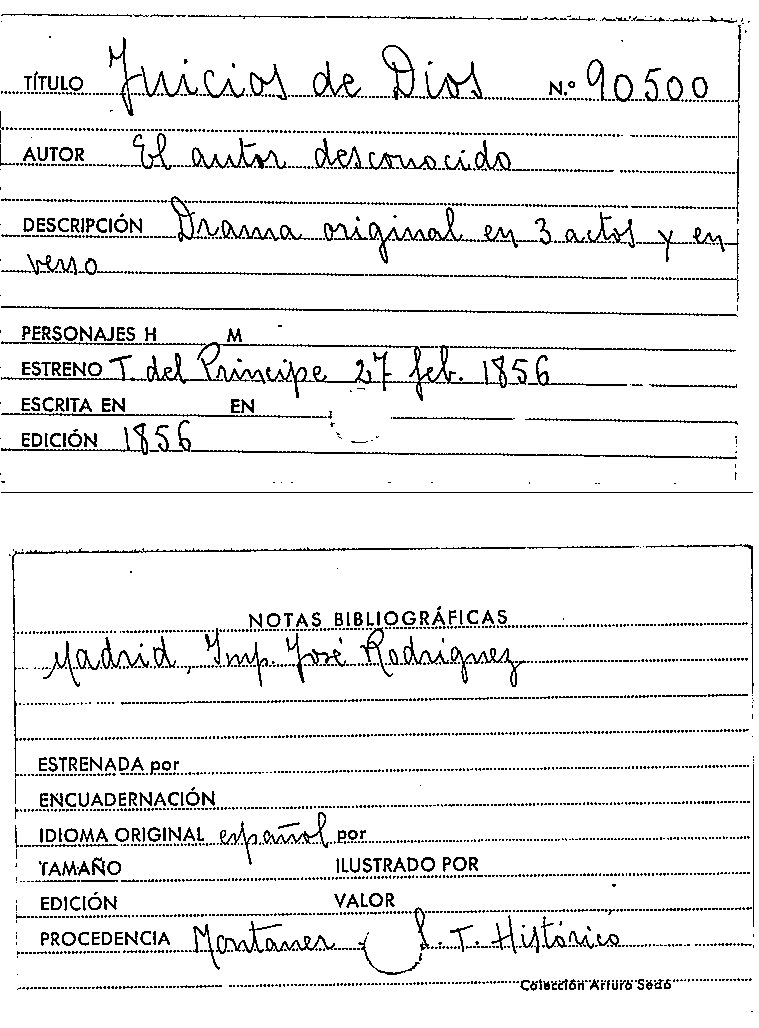 TÍTULO Juicios de Dios N.º 90500
AUTOR El autor desconocido
DESCRIPCIÓN Drama original en 3 actos y en
verso
PERSONAJES H M
ESTRENO T. del Principe 27 feb. 1856
ESCRITA EN EN
EDICIÓN 1856
NOTAS BIBLIOGRÁFICAS
Madrid, Imp. José Rodriguez
ESTRENADA por
ENCUADERNACIÓN
IDIOMA ORIGINAL español por
TAMAÑO ILUSTRADO POR
EDICIÓN VALOR
PROCEDENCIA Montaner - L. T. Histórico
Colección Arturo Sedó